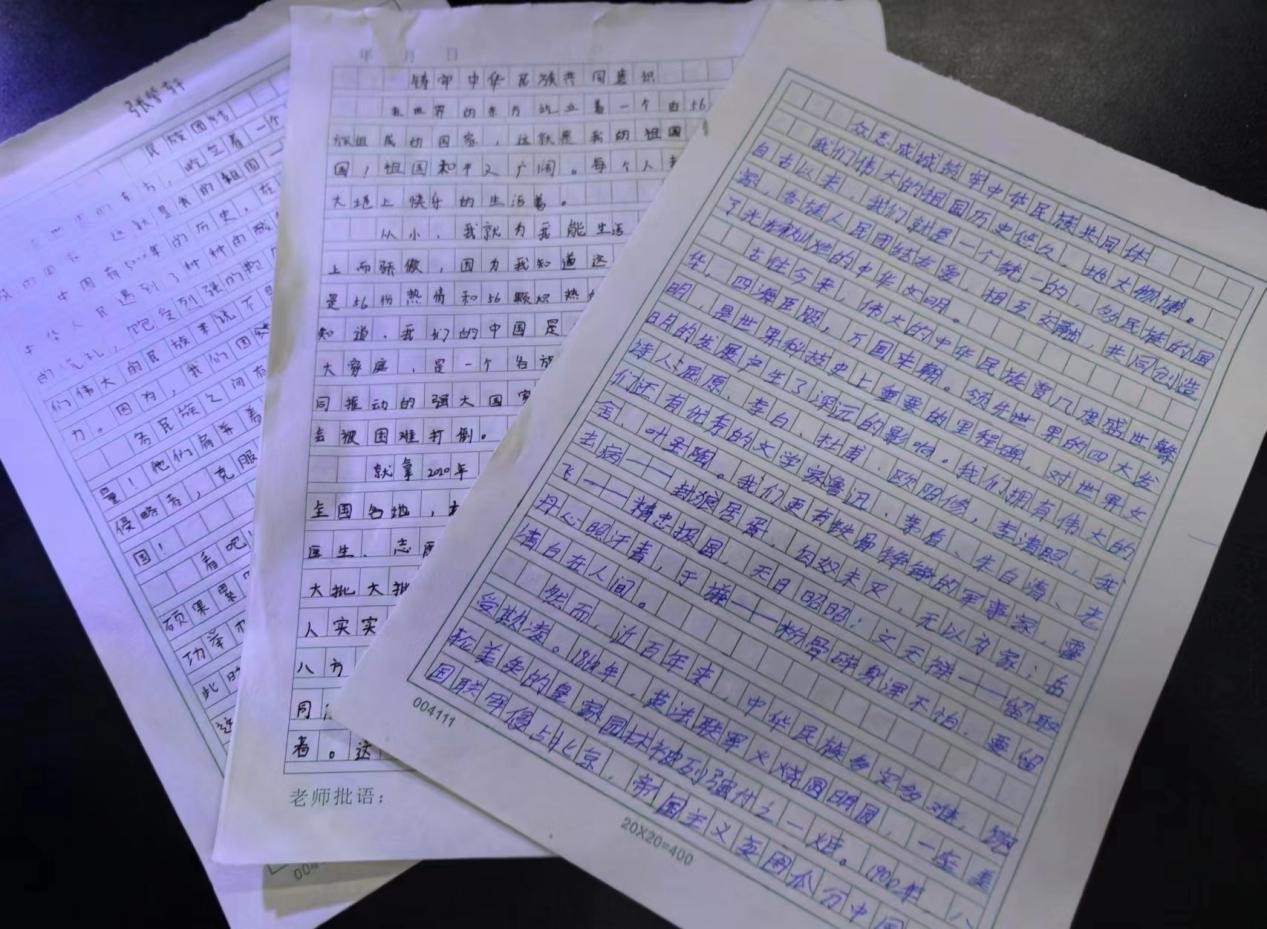 张梦轩
民族团结
，屹立着一个
这就是我的祖国一
中国有5000年的历史，在
中华人民遇到了种种的
的
们伟大的民族来说不是
力。因为，我们团结
各民族之间
量！他们肩并着
侵略者，克服
国！
看吧
硕果累
功举
此时
这
年 月 日
铸牢中华民族共同意识
在世界的东方屹立着一个由56
族组成的国家，这就是我的祖国
国，祖国和平又广阔。每个人都
大地上快乐的生活着。
从小，我就为我能生活
上而骄傲，因为我知道这
是56份热情和56颗炽热
知道，我们的中国是
大家庭，是一个各族
同推动的强大国家
会被困难打倒。
就拿2020年
全国各地，
医生、志愿
大批大批
人实实
八方
同
着。这
老师批语：
众志成城铸牢中华民族共同体
我们伟大的祖国历史悠久、地大物博。
自古以来，我们就是一个统一的，多民族的国
家，各族人民团结友爱，相互交融，共同创造
了光辉灿烂的中华文明。
古往今来，伟大的中华民族曾几度盛世繁
华，四海臣服，万国来朝。领先世界的四大发
明，是世界科技史上重要的里程碑，对世界文
明的发展产生了深远的影响。我们拥有伟大的
诗人：屈原、李白、杜甫、欧阳修，李清照，我
们还有优秀的文学家鲁迅、茅盾、朱自清、老
舍、叶圣陶。我们更有铁骨铮铮的军事家：霍
去病——封狼居胥、匈奴未灭，无以为家；岳
飞——精忠报国，天日昭昭；文天祥——留取
丹心照汗青，于谦——粉骨碎身浑不怕，要留
清白在人间。
然而，近百年来，中华民族多灾多难，饱
受欺凌。1860年，英法联军火烧圆明园，一座美
轮美奂的皇家园林被列强付之一炬。1900年，八
国联军侵占北京，帝国主义妄图瓜分中国
004111
20X20=400